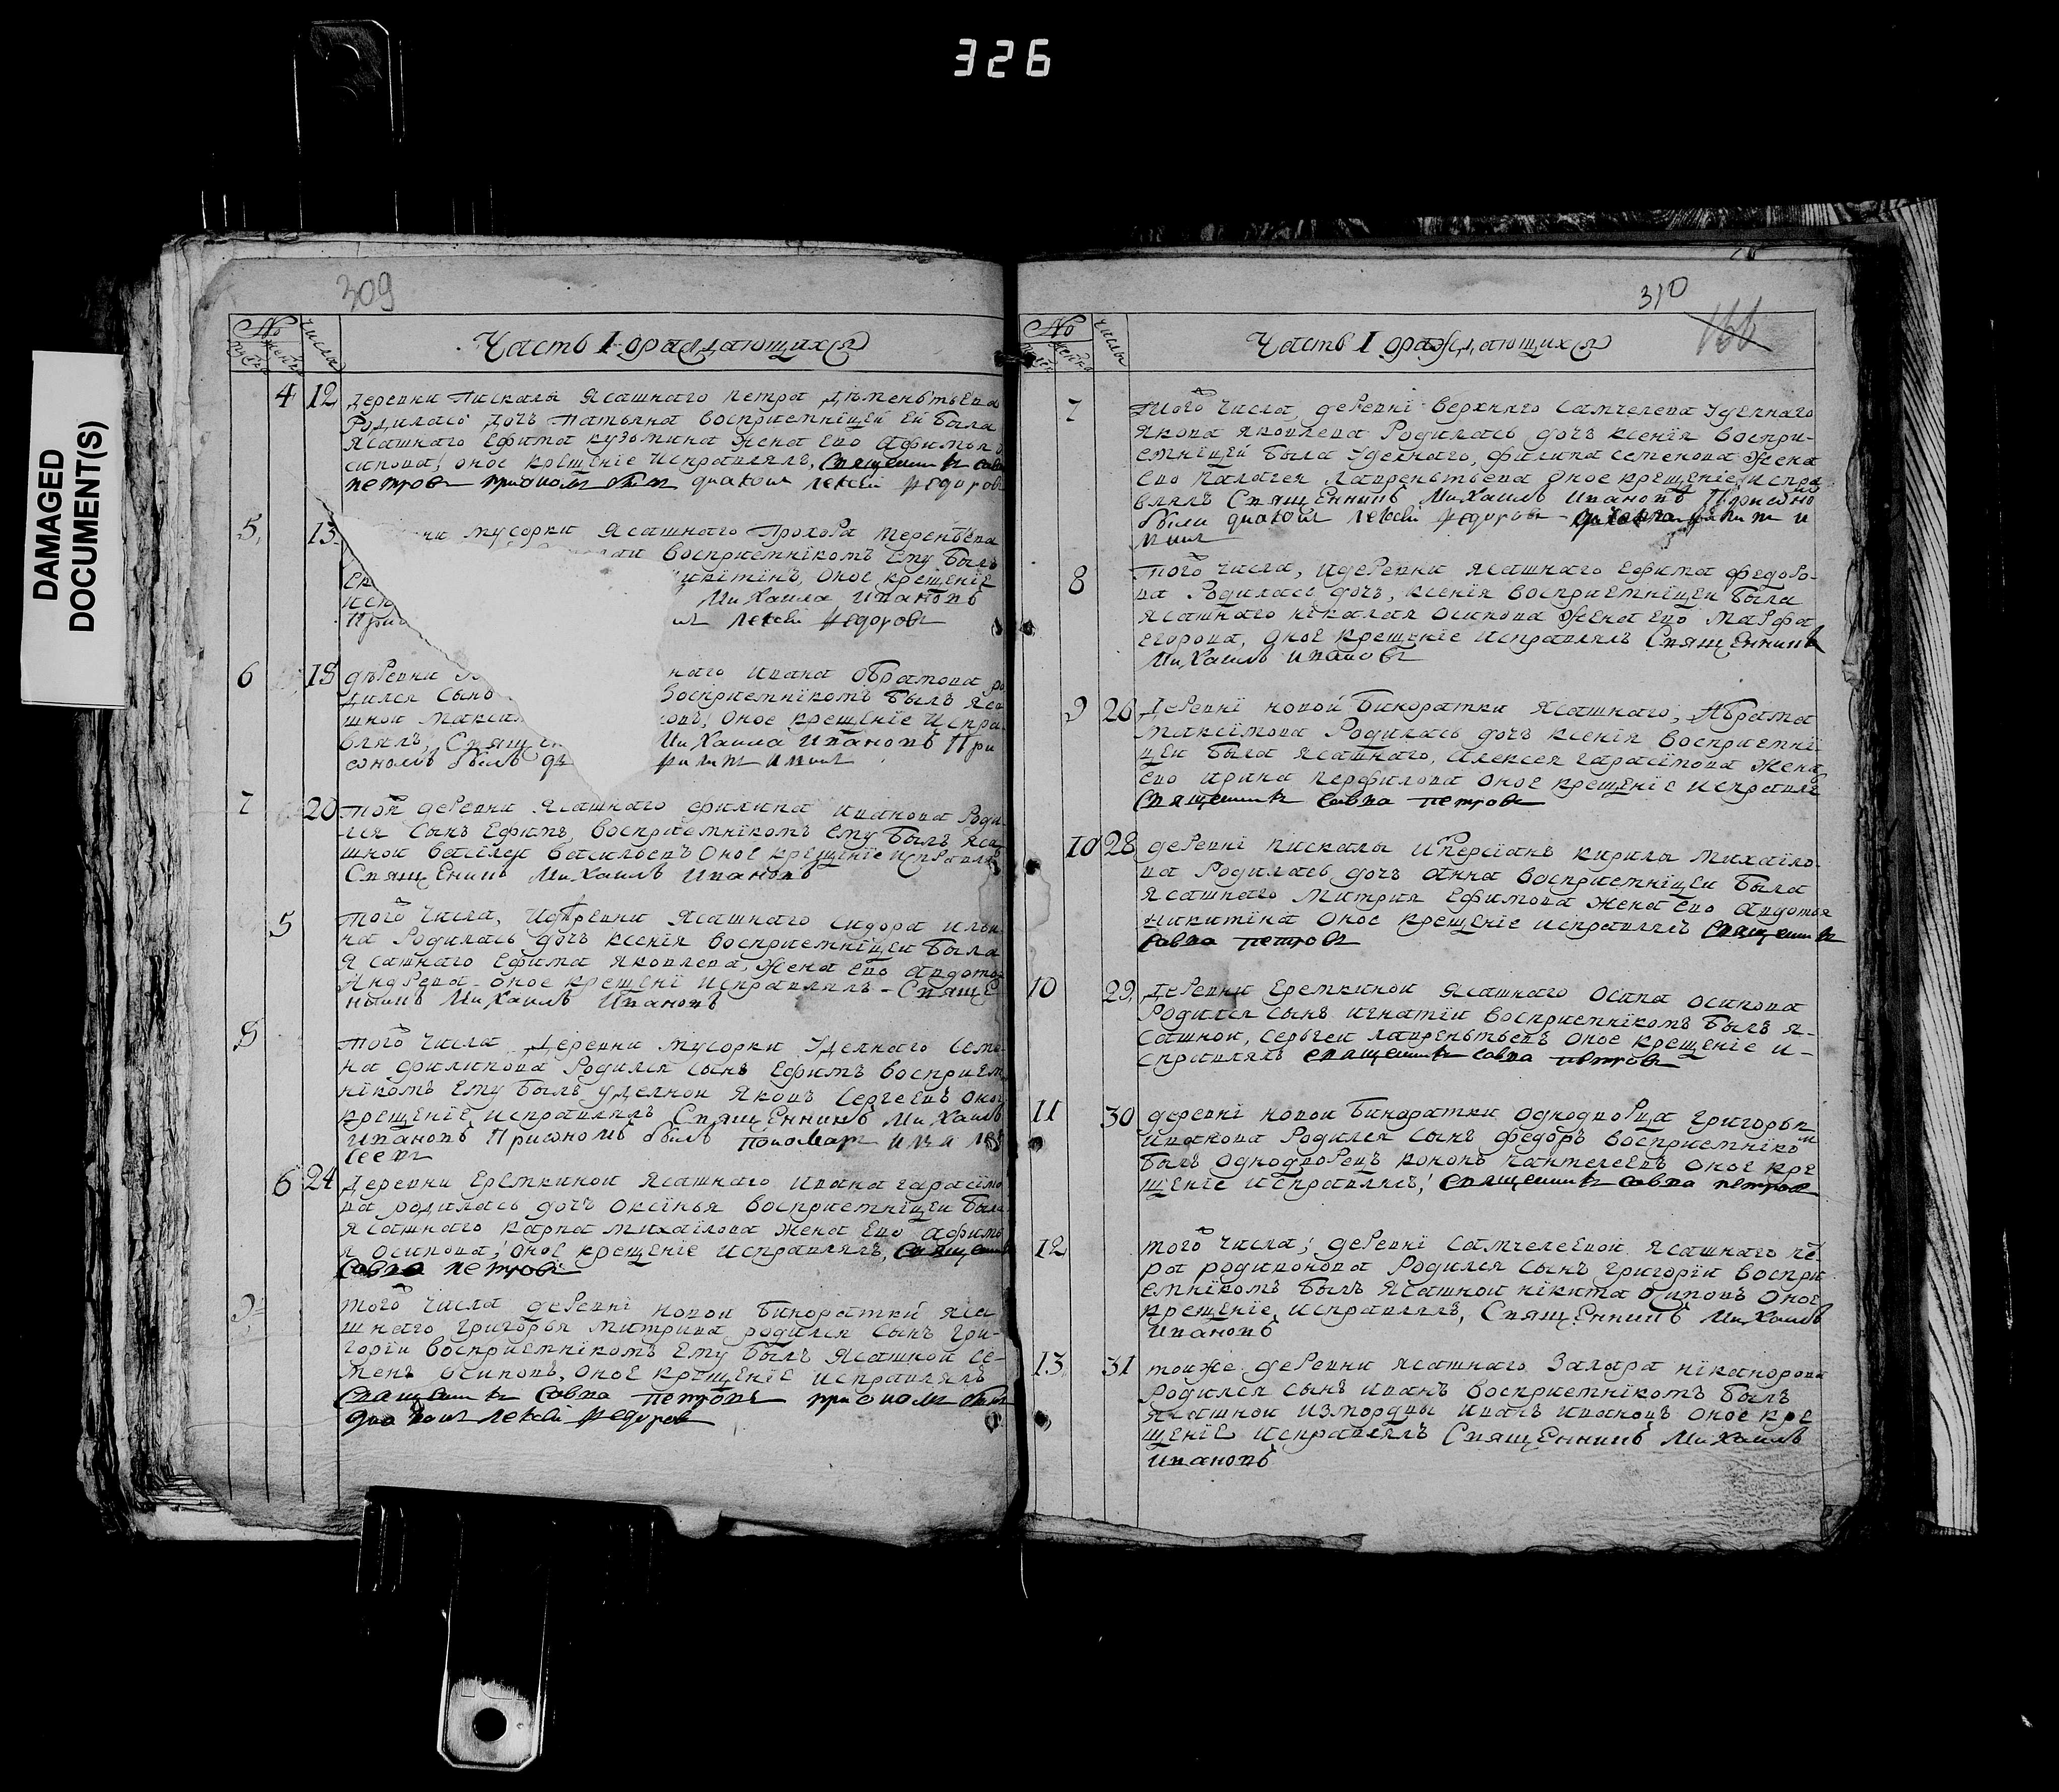 326
DAMAGED
DOCUMENT(S)
309
№
числа
Часть I ораждающихся
4 12 деревни Пискалы Ясашнаго петра Дѣменьтьева
Родилась дочь татьяна восприемніцей ей была
Ясашнаго Ефима кузьмина жена Ево Афимья о
сипова, оное крещение исправлялъ, священник савва
петров при оном был диакон лексей федоров
5 13 мусорки Ясашнаго Прохора терентьева
восприемнікомъ Ему былъ
икитинъ, оное крещенїе
Михаила Ивановъ
лексей федоров
6 18 дѣревни наго ивана обрамова ро
дился сынъ восприемнїкомъ былъ яса
шной максим оное крещенїе испра
влялъ, Свящ Михаила Ивановъ При
ономъ былъ
7 20 той деревни Ясашнаго филипа иванова Роди
лся сынъ Ефимъ, восприемнїкомъ ему былъ яса
шной василей васильевъ оное крещенїе исправлялъ
Священикъ Михаилъ Ивановъ
5 того числа, идѣревни ясашнаго сидора ильи
на Родилась дочь ксенїя восприемнїцей была
Ясашнаго Ефима яковлева, жена ево авдотья
Андрева оное крещенї исправлялъ - Свяще
ныикъ Михаилъ Ивановъ
8 того числа Деревни мусорки Уделнаго семе
на филипова Родился сынъ Ефимъ восприем
нїкомъ ему былъ уделной Яковъ Сергеевъ оное
крещенїе исправлялъ Священникъ Михаилъ
Ивановъ Приономъ былъ пономарь
6 24 Деревни Еремкиной ясашнаго ивана гарасимо
ва родилась дочь оксїнья восприемнїцей была
Ясашнаго карпа михаїлова жена Ево афимь
я осипова, оное крещенїе исправлялъ, священник
савва петров
9 того числа деревнї новой Бинаратки яса
шнаго григорья митрива родился сынъ гри-
горїи восприемнїкомъ ему былъ ясашной се-
менъ осиповъ, оное крещенїе исправлялъ
священник савва петровъ при оном был
диакон лексей федоров
310
№
числы
Часть I ораждающихся
7 того числа, деревнї верхняго самчелева Уделнаго
якова яковлева Родилась дочь ксенїя воспри-
емнїцей была Уделнаго, филипа семенова жена
Ево палагея лавреньтьева оное крещенїе испра
влялъ Священникъ Михаилъ Ивановъ Приономъ
были диакон лексей федоров
8 того числа, идеревни ясашнаго Ефима федоро-
ва Родилась дочь, ксенїя восприемнїцей была
ясашнаго нїкалая осипова жена Ево марфа
егорова, оное крещенїе исправлялъ Священникъ
Михаилъ Иванов
9 26 Деревнї новой Бинаратки ясашнаго, Абрама
максїмова Родилась дочь ксенїя восприемнї
цей была ясашнаго, алексея гарасїмова жена
ево ирина перфилова оное крещенїе исправля
священник савва петров
10 28 деревнї пискалы кирила михаїло
ва Родилась дочь анна восприемнїцей была
ясашнаго митрия Ефимова жена ево авдотья
никитїна оное крещенїе исправлялъ священник
савва петров
10 29 Деревни Еремкиной ясашнаго осипа осипова
Родился сынъ игнатїи восприемнїкомъ былъ я-
сашной, сергей лавреньтьевъ оное крещенїе и-
справлялъ священник савва петров
11 30 деревнї новой Бинаратки однодворца григорья
иванова Родился сынъ федоръ восприемнїком
былъ однодворецъ кононъ пантелеевъ оное кре
щенїе исправлялъ, священник савва петров
12 того числа, деревнї самчелевой ясашнаго пе
ра родиванова Родился сынъ григорїи воспри
емнїкомъ былъ ясашной нїкита оное
крещенїе исправлялъ, Священникъ Михаилъ
Ивановъ
13 31 тоиже деревни ясашнаго Захара нїканорова
Родился сынъ иванъ восприемнїкомъ былъ
ясашной измордвы иванъ ивановъ оное кре
щенїе исправлялъ Священникъ Михаилъ
Ивановъ